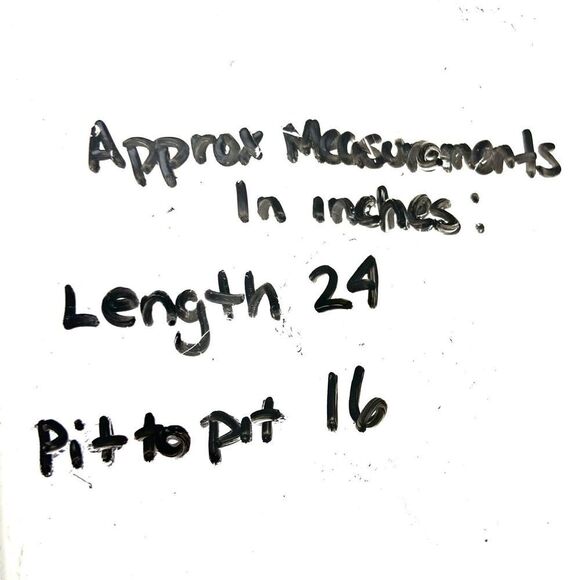 Approx Measurements
In inches:
Length 24
Pit to pit 16